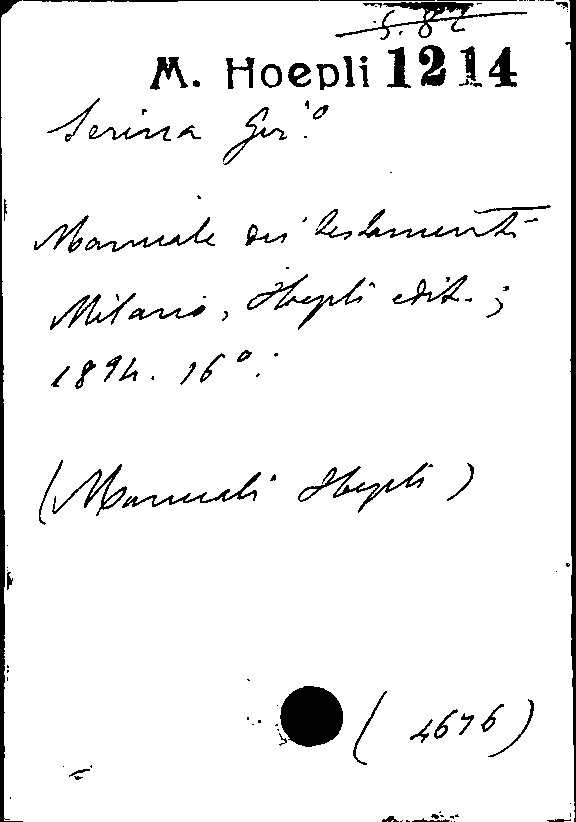 5.82
M. Hoepli 1214
Serina Ger.º
Manuale dei testamenti
Milano, Hoepli edit. ;
1894. 16º.
(Manuali Hoepli)
(4676)